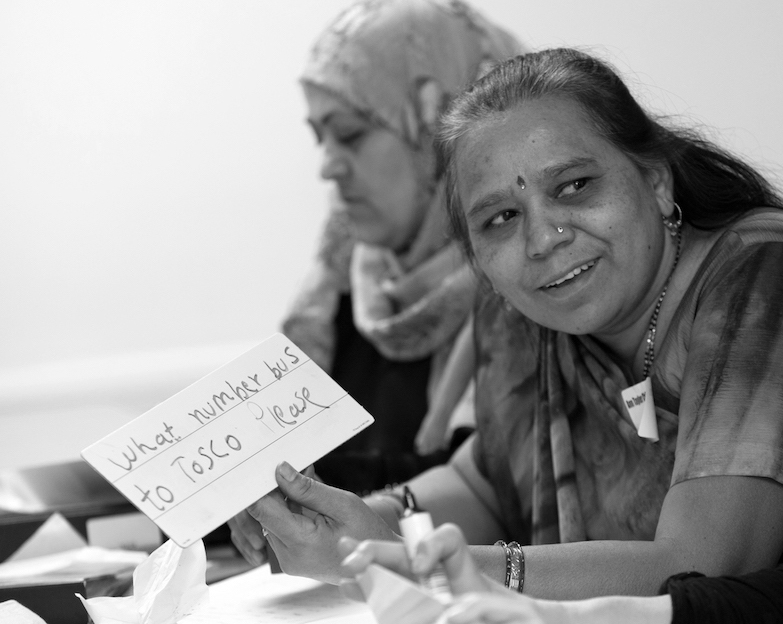 What number bus
to Tosco Please